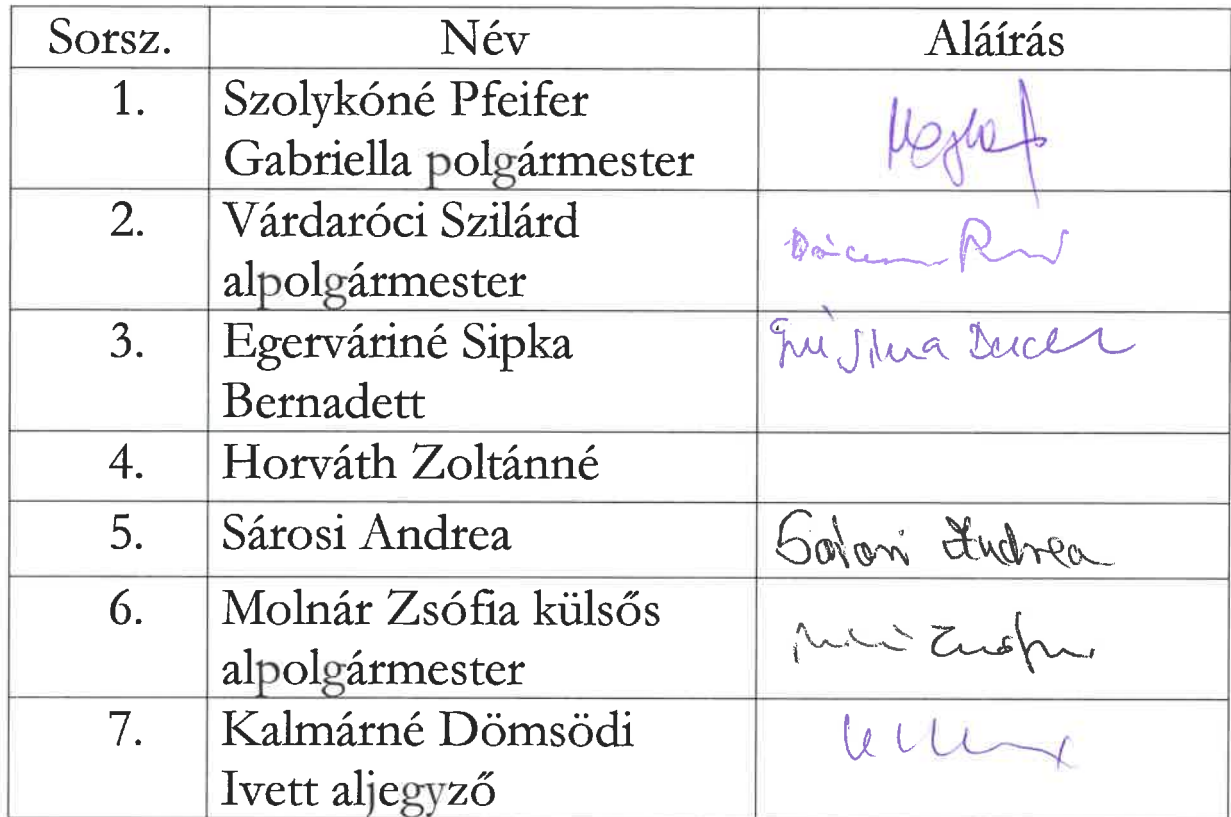 Sorsz. Név Aláírás
1. Szolykóné Pfeifer
Gabriella polgármester
2. Várdaróci Szilárd
alpolgármester
3. Egerváriné Sipka
Bernadett
4. Horváth Zoltánné
5. Sárosi Andrea Andrea
6. Molnár Zsófia külsős
alpolgármester
7. Kalmárné Dömsödi
Ivett aljegyző